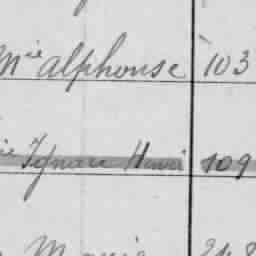 Mie Alphonse 103
ie Ignace Henri 109
Marie 248